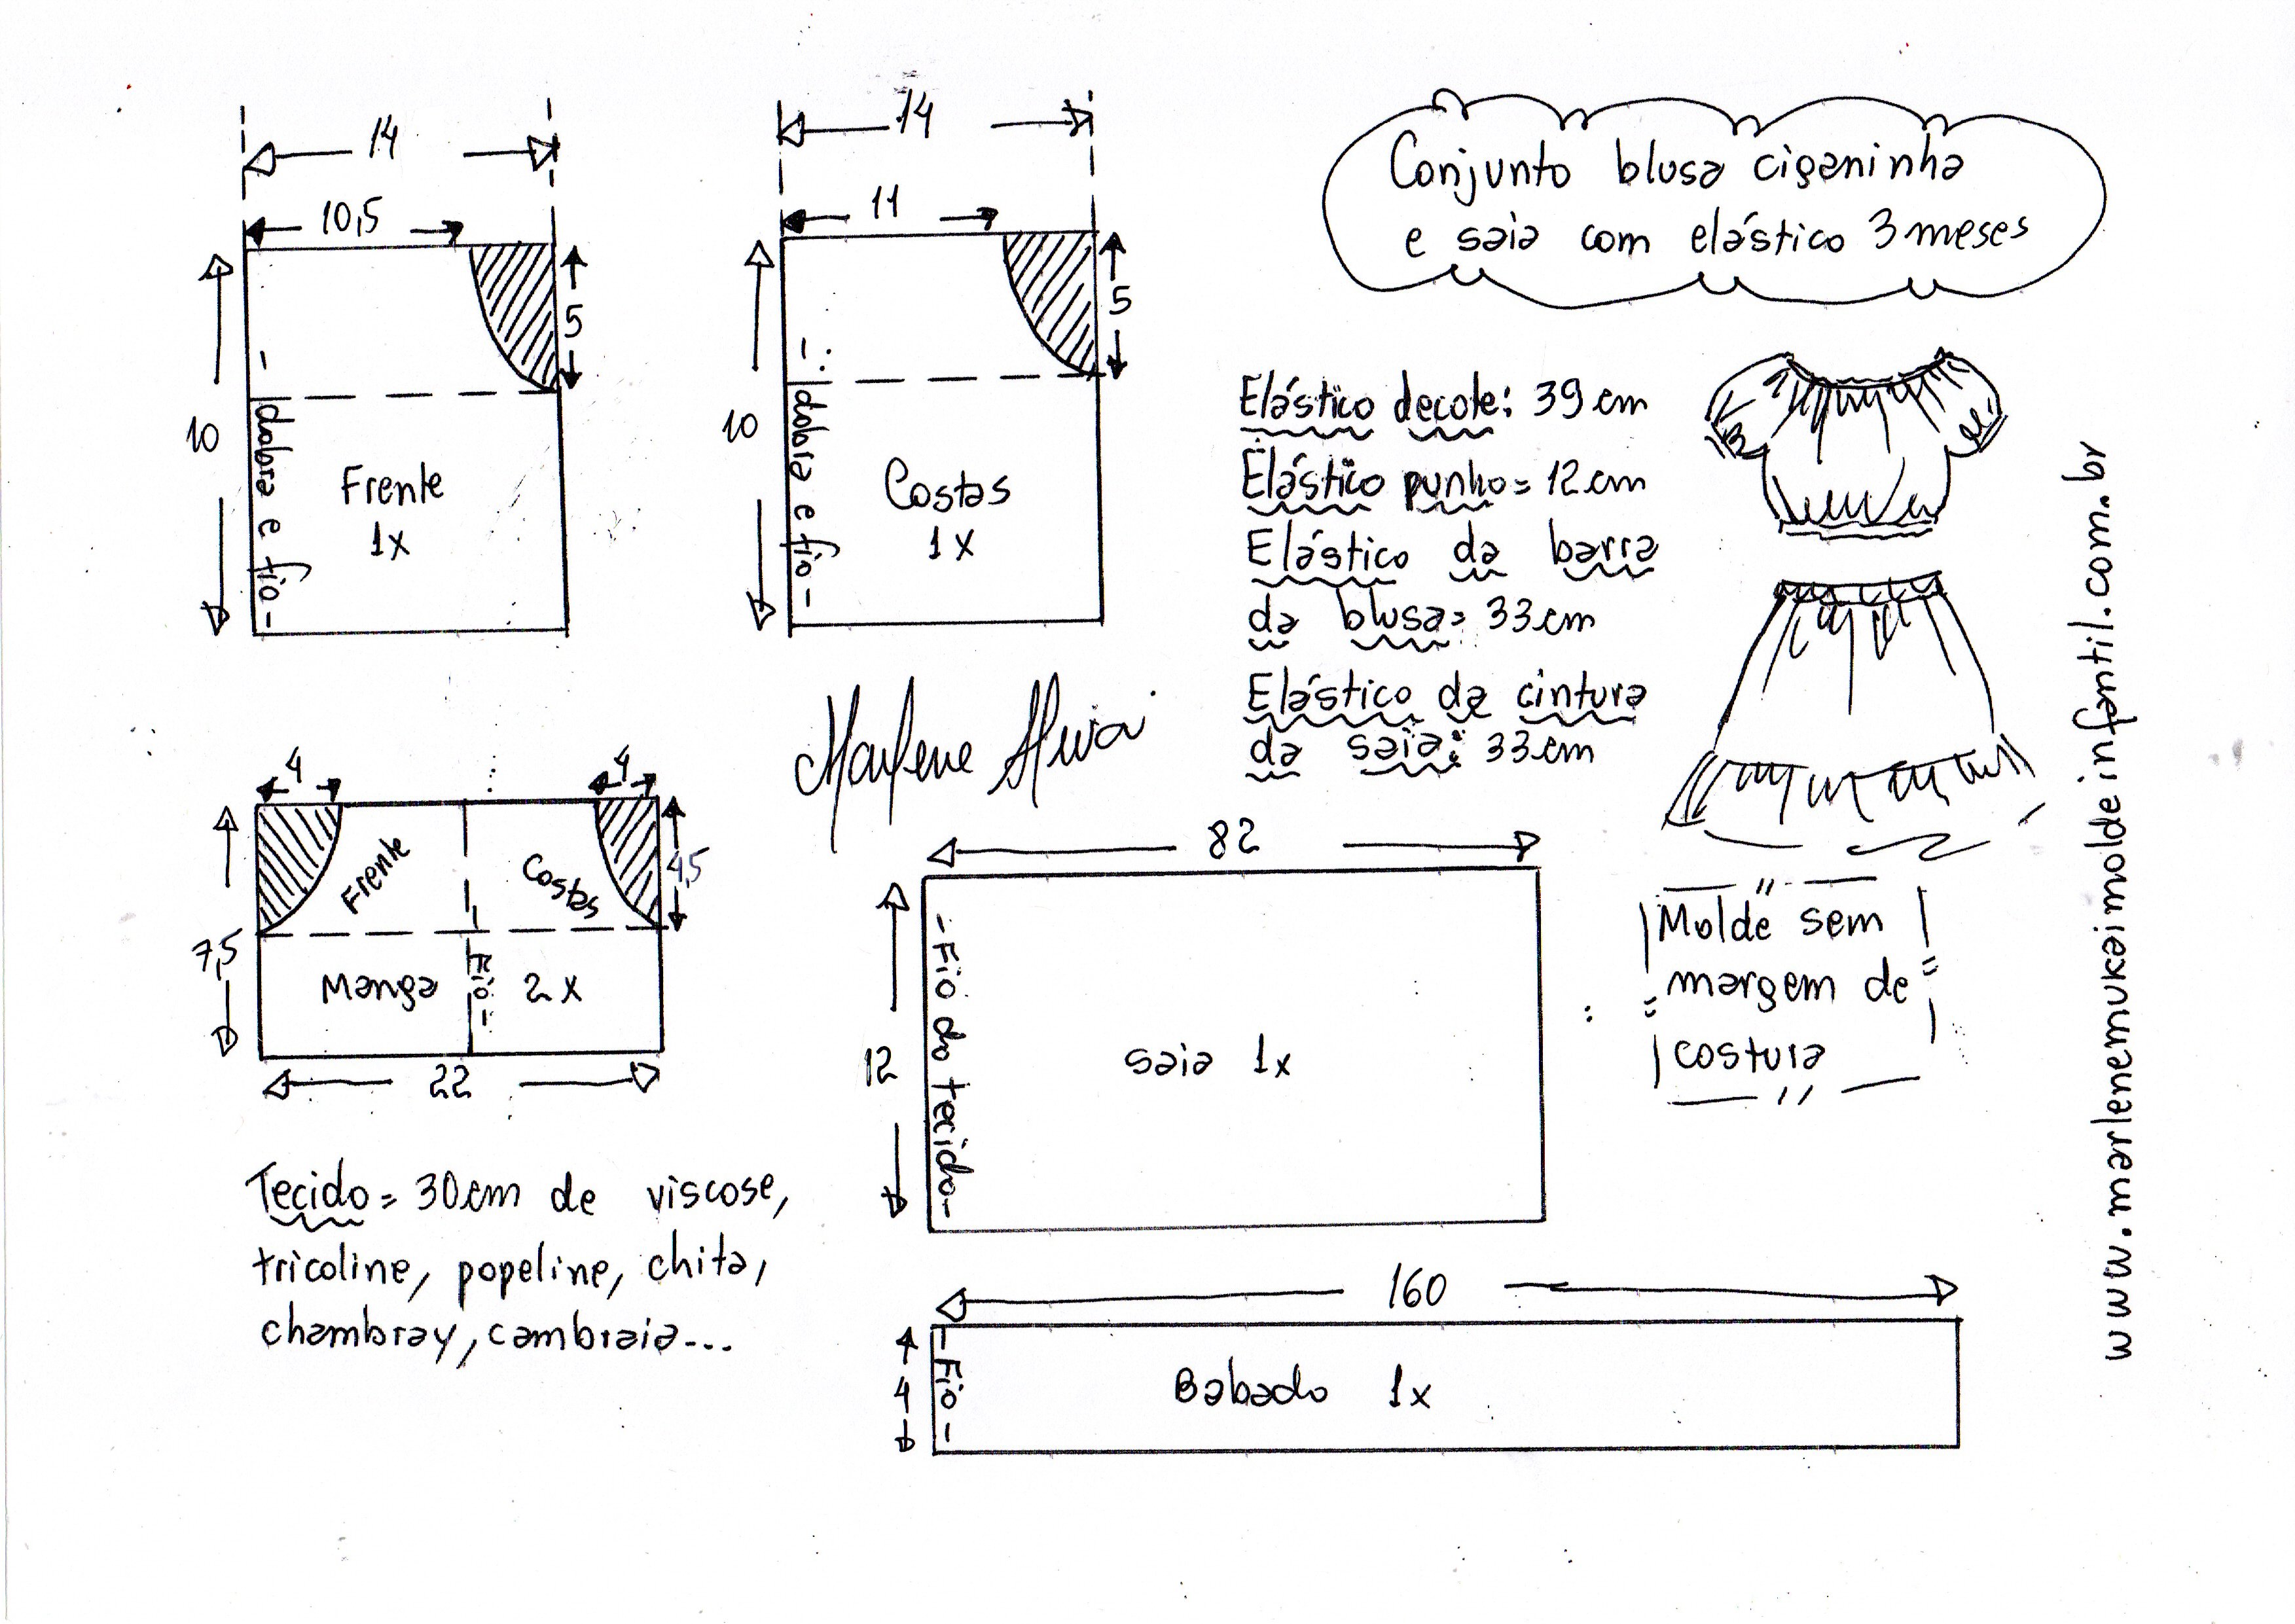 Conjunto blusa ciganinha
e saia com elástico 3 meses
14
10,5
5
10
dobra e fio
Frente
1x
14
11
5
10
dobra e fio
Costas
1x
Elástico decote: 39 cm
Elástico punho = 12 cm
Elástico da barra
da blusa = 33 cm
Elástico da cintura
da saia: 33 cm
Marlene Mukai
4
4
4,5
7,5
Frente
Costas
Manga
Fio
2x
22
82
12
Fio do tecido
saia 1x
Molde sem
margem de
costura
Tecido = 30 cm de viscose,
tricoline, popeline, chita,
chambray, cambraia...
160
4
Fio
Babado 1x
www.marlenemukaimoldeinfantil.com.br